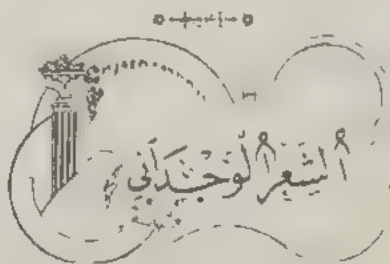 أَلشِّعْرُ الْوِجْدَانِي